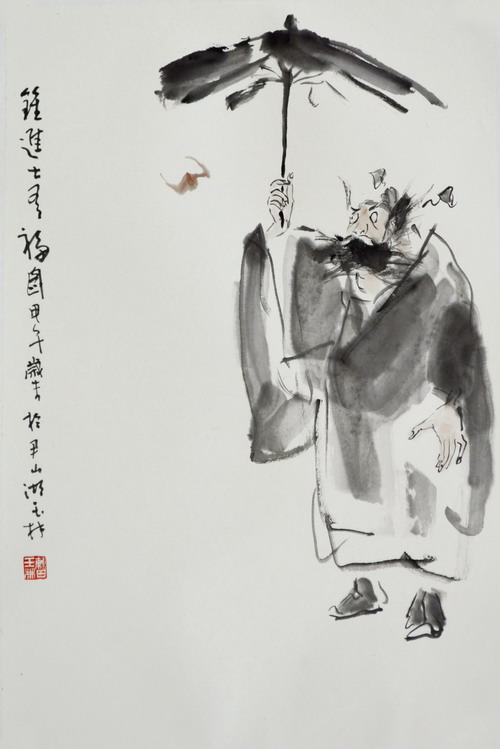 鍾進士有福圖甲午歲於尹山湖玉